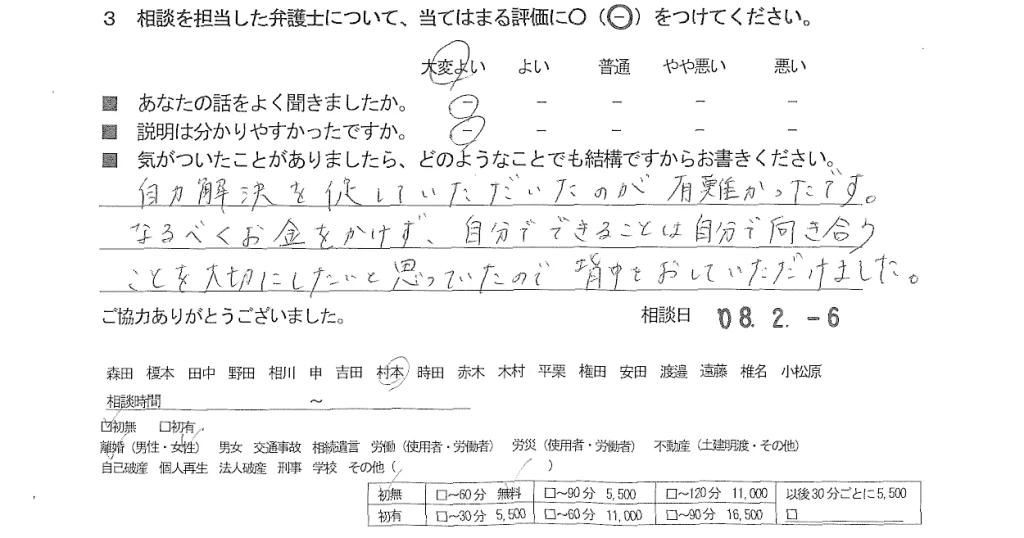 3 相談を担当した弁護士について、当てはまる評価に○（㊀）をつけてください。
大変よい よい 普通 やや悪い 悪い
■ あなたの話をよく聞きましたか。 － － － － －
■ 説明は分かりやすかったですか。 － － － － －
■ 気がついたことがありましたら、どのようなことでも結構ですからお書きください。
自力解決を促していただいたのが有難かったです。
なるべくお金をかけず、自分でできることは自分で向き合う
ことを大切にしたいと思っていたので背中をおしていただけました。
ご協力ありがとうございました。 相談日 '08.2.-6
森田 榎本 田中 野田 相川 申 吉田 村本 時田 赤木 木村 平栗 権田 安田 渡邉 遠藤 椎名 小松原
相談時間 ～
☑初無 □初有
離婚（男性・女性） 男女 交通事故 相続遺言 労働（使用者・労働者） 労災（使用者・労働者） 不動産（土建明渡・その他）
自己破産 個人再生 法人破産 刑事 学校 その他（ ）
初無 □～60分 無料 □～90分 5,500 □～120分 11,000 以後30分ごとに5,500
初有 □～30分 5,500 □～60分 11,000 □～90分 16,500 □